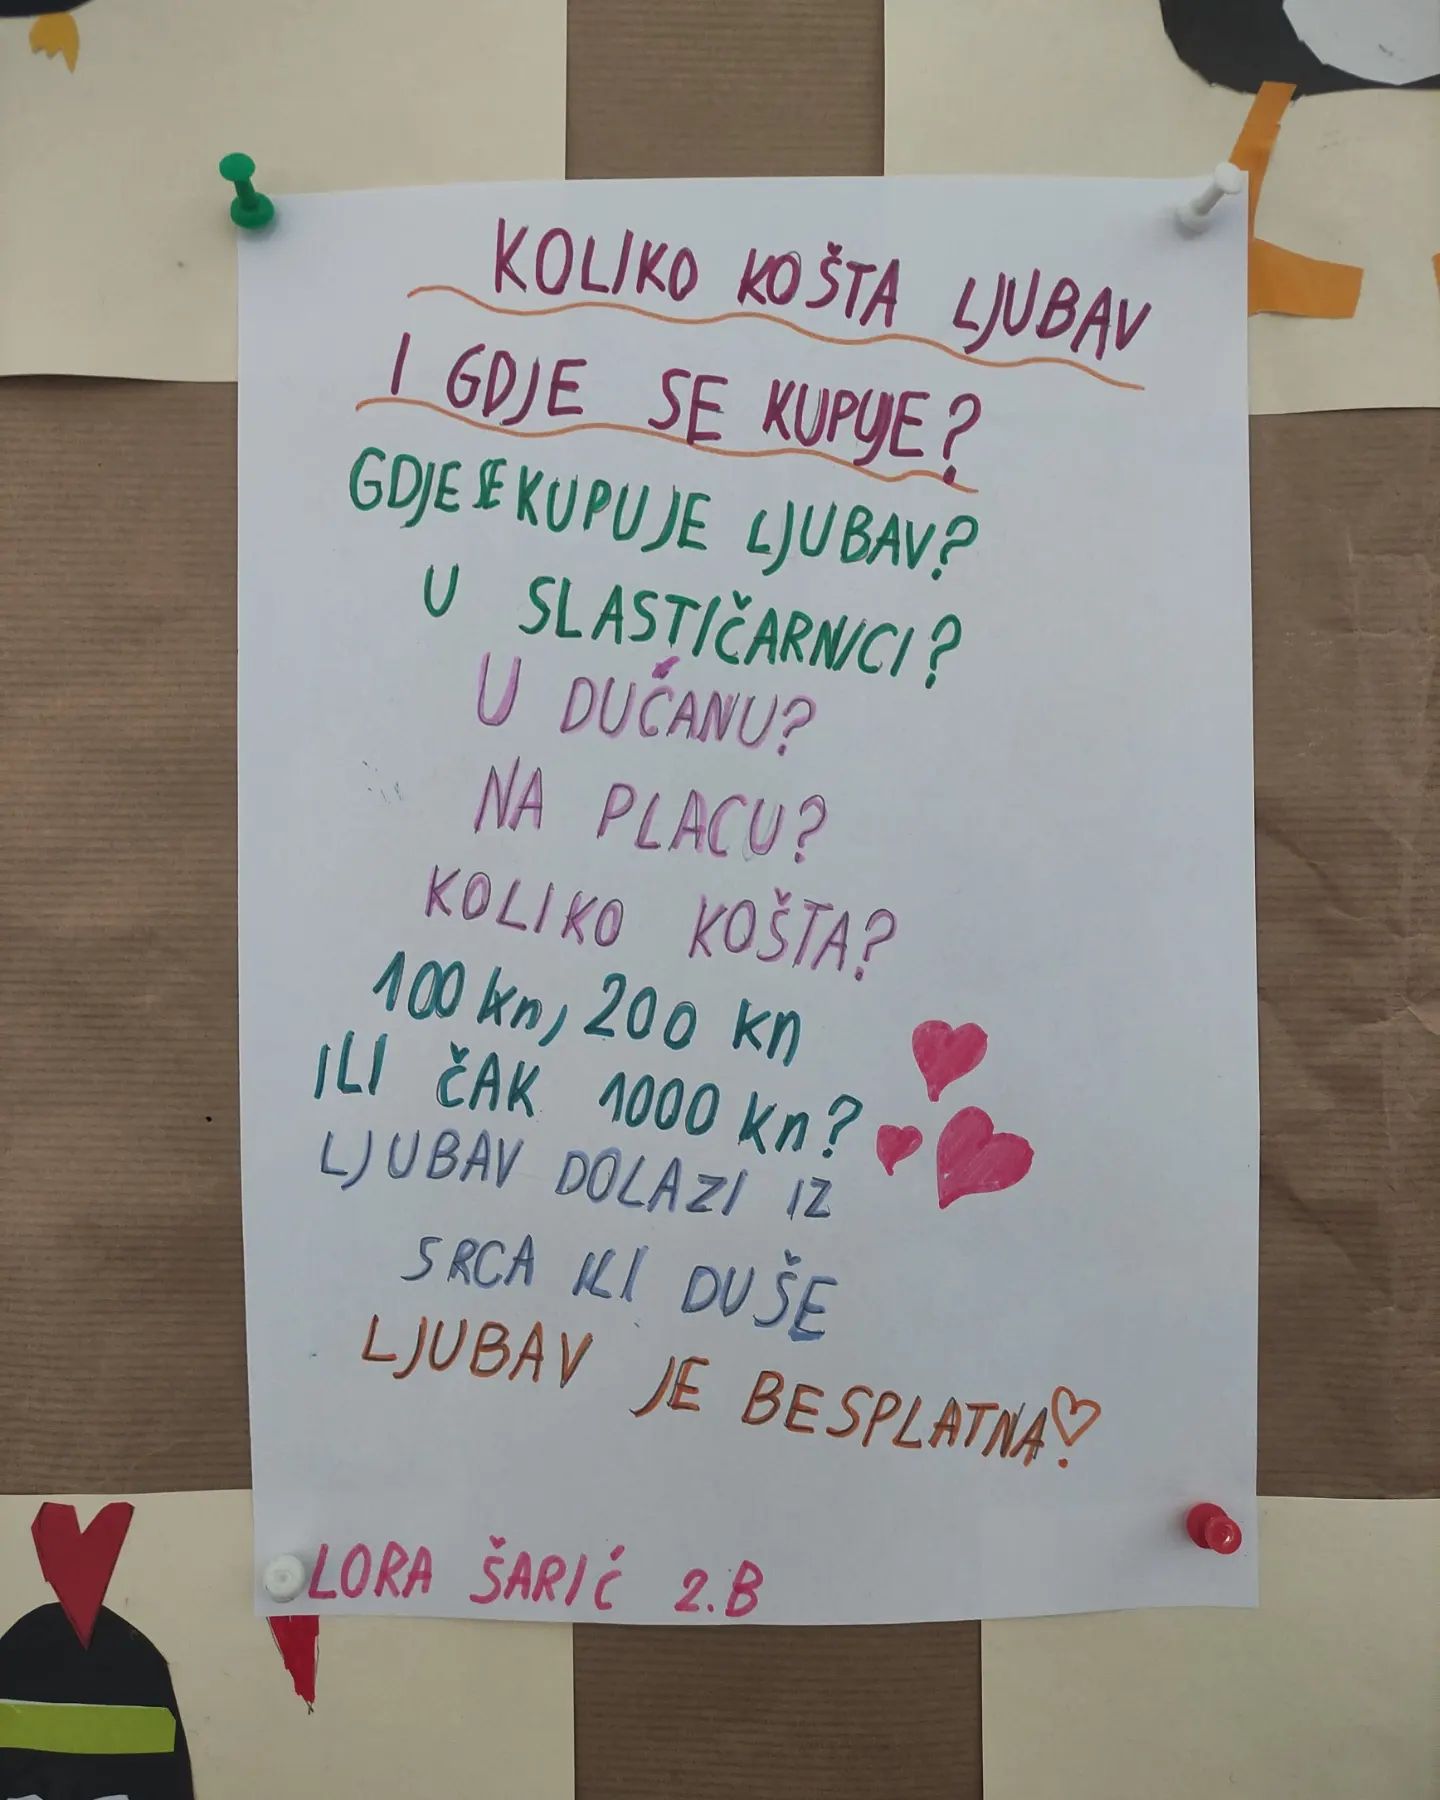 KOLIKO KOŠTA LJUBAV
I GDJE SE KUPUJE?
GDJE SE KUPUJE LJUBAV?
U SLASTIČARNICI?
U DUĆANU?
NA PLACU?
KOLIKO KOŠTA?
100 kn, 200 kn
ILI ČAK 1000 kn?
LJUBAV DOLAZI IZ
SRCA ILI DUŠE
LJUBAV JE BESPLATNA♡
LORA ŠARIĆ 2.B